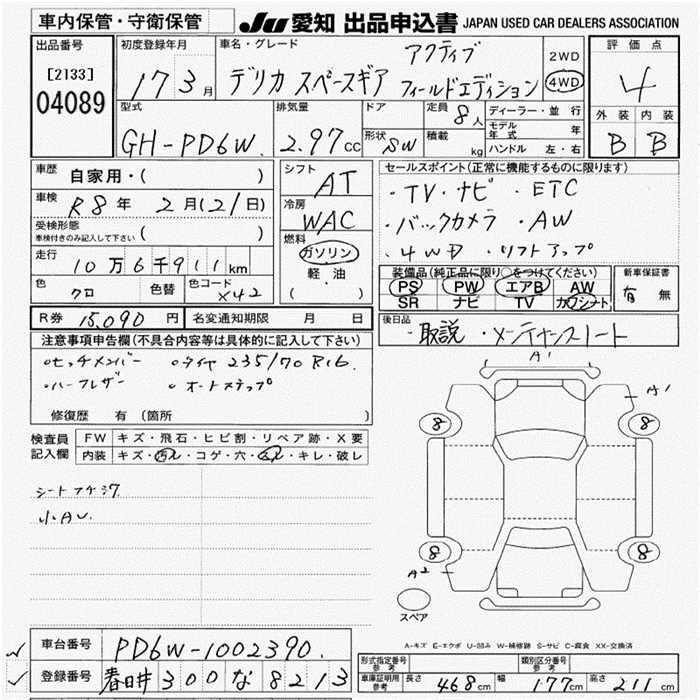 車内保管・守衛保管
JU 愛知 出品申込書 JAPAN USED CAR DEALERS ASSOCIATION
出品番号
[2133]
04089
初度登録年月
17 3月
車名・グレード
デリカ スペースギア アクティブ フィールドエディション
2WD
4WD
評価点
4
外装 内装
B B
型式
GH-PD6W
排気量
2.97cc
ドア
形状 SW
定員 8人
積載 kg
ディーラー・並行
モデル年式 年
ハンドル 左・右
車歴
自家用・( )
車検
R8年 2月(21日)
受検形態
車検付きのみ記入して下さい ( )
走行
10万6千911km
色
クロ
色替
色コード
X42
シフト
AT
冷房
WAC
燃料
ガソリン
軽・油
( )
セールスポイント(正常に機能するものに限ります)
・TV・ナビ ・ETC
・バックカメラ ・AW
・4WD ・リフトアップ
装備品(純正品に限り○をつけてください)
PS PW エアB AW
SR ナビ TV カワシート
新車保証書
有 無
R券 15,090円
名変通知期限 月 日
後日品
・取説 ・メンテナンスノート
注意事項申告欄(不具合内容等は具体的に記入して下さい)
・セッチメンバー ・タイヤ 235/70R16.
・ハーフレザー ・オートステップ
修復歴 有(箇所 )
検査員記入欄
FW キズ・飛石・ヒビ割・リペア跡・X要
内装 キズ・汚レ・コゲ・穴・スレ・キレ・破レ
小AU.
A1
A1
8 8
8 8
A2
スペア
A-キズ E-エクボ U-凹み W-補修跡 S-サビ C-腐食 XX-交換済
車台番号 PD6W-1002390.
登録番号 春日井 300 な 8213
形式指定番号 参考
類別区分番号 参考
車庫証明用参考 長さ 468cm 幅 177cm 高さ 211cm